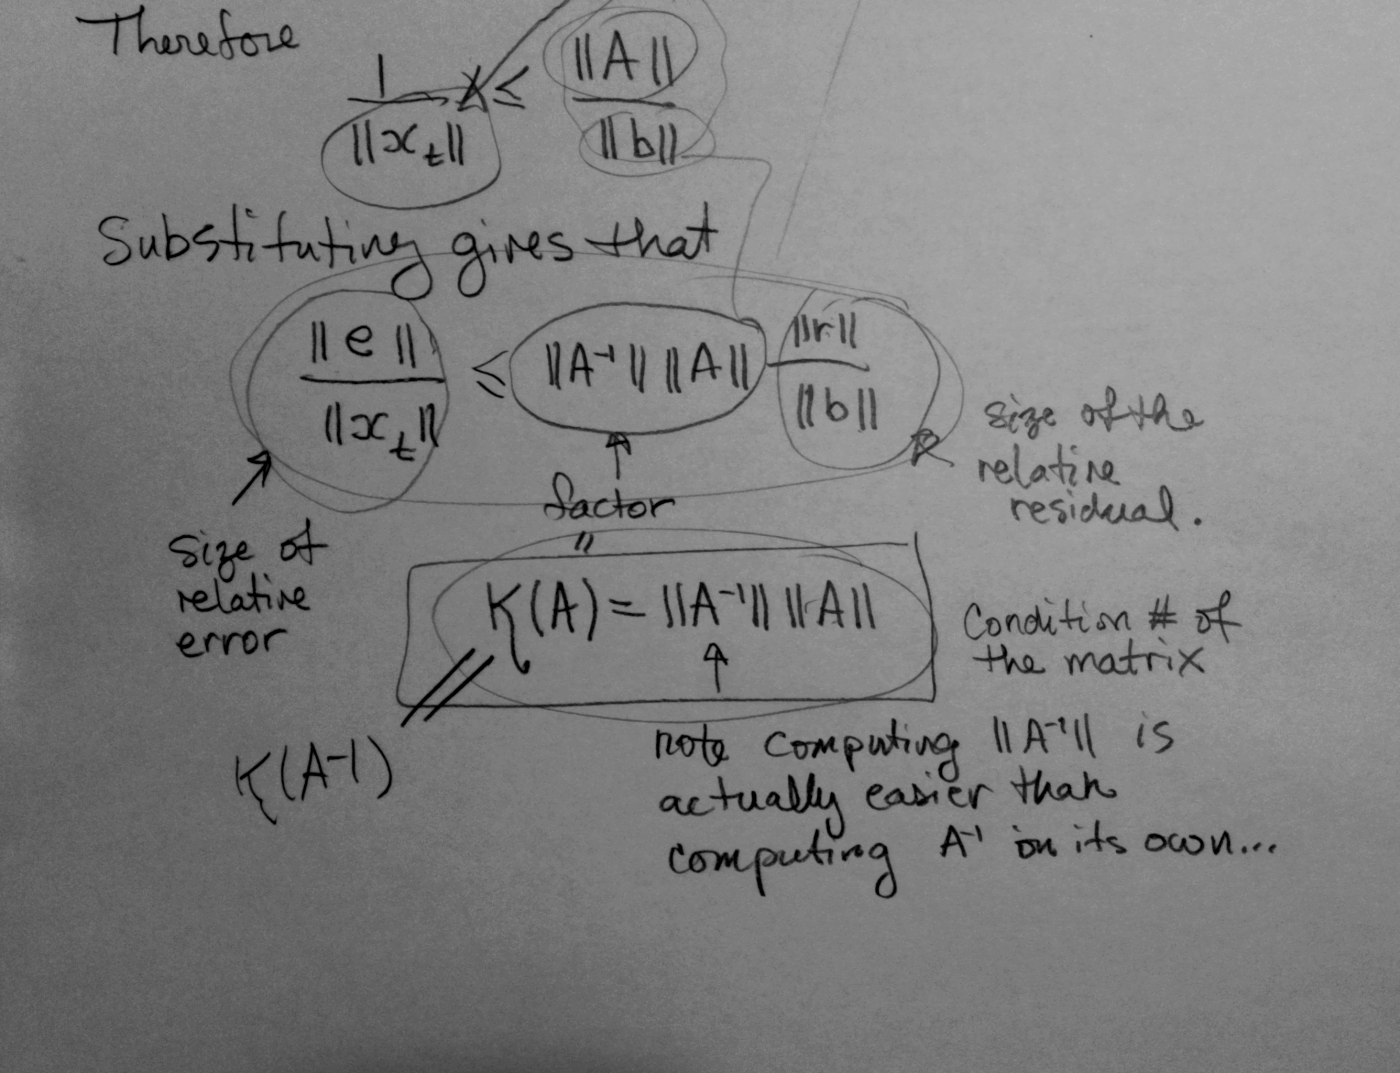 Therefore
1/||x_t|| ≤ ||A||/||b||
Substituting gives that
||e||/||x_t|| ≤ ||A⁻¹|| ||A|| ||r||/||b||
size of the
relative
residual.
factor
size of
relative
error
"
K(A) = ||A⁻¹|| ||A||
Condition # of
the matrix
K(A-1)
note computing ||A⁻¹|| is
actually easier than
computing A⁻¹ on its own...